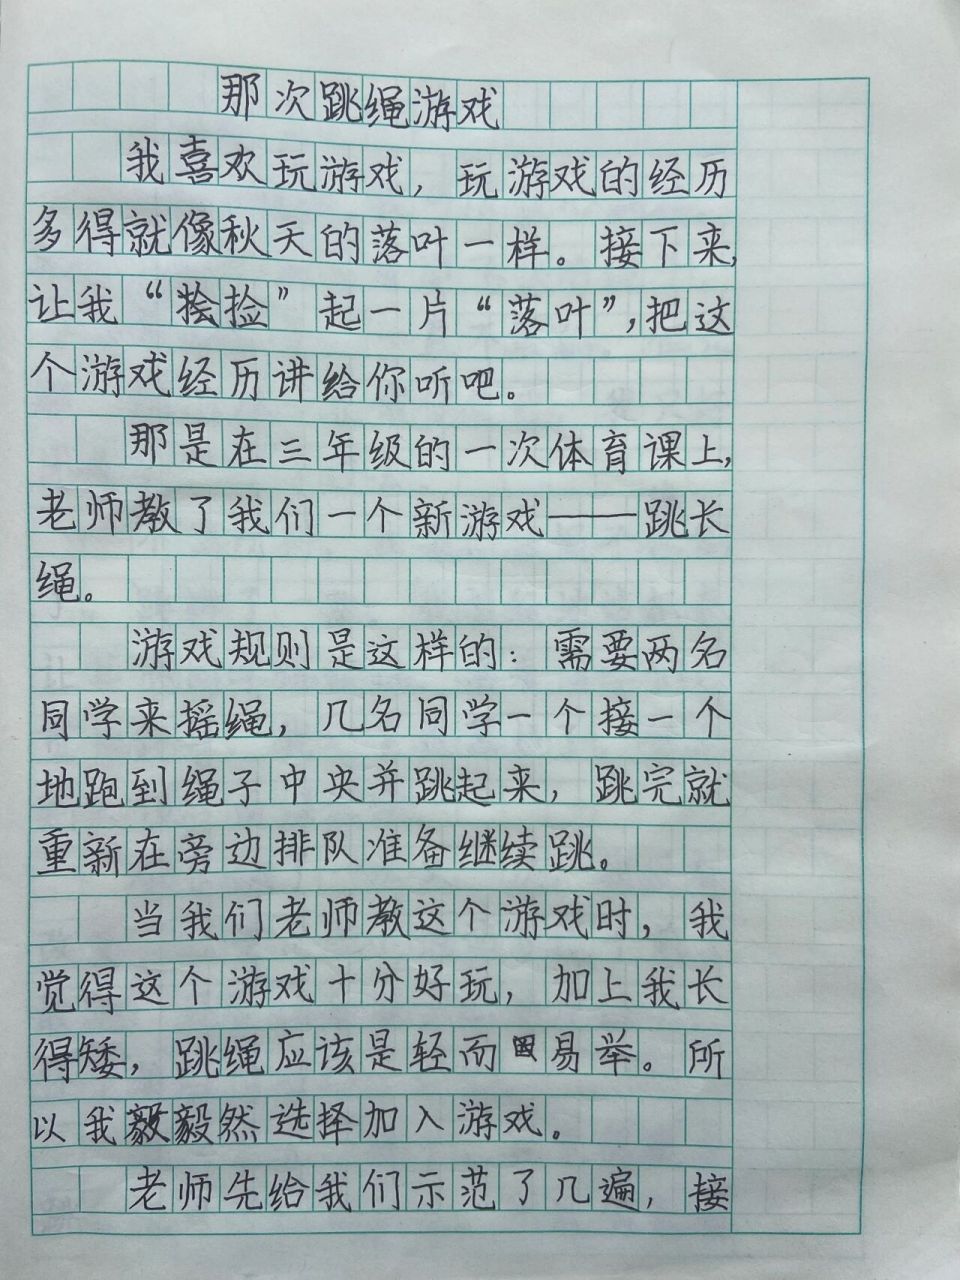 那次跳绳游戏
我喜欢玩游戏，玩游戏的经历
多得就像秋天的落叶一样。接下来，
让我“捡”起一片“落叶”，把这
个游戏经历讲给你听吧。
那是在三年级的一次体育课上，
老师教了我们一个新游戏——跳长
绳。
游戏规则是这样的：需要两名
同学来摇绳，几名同学一个接一个
地跑到绳子中央并跳起来，跳完就
重新在旁边排队准备继续跳。
当我们老师教这个游戏时，我
觉得这个游戏十分好玩，加上我长
得矮，跳绳应该是轻而易举。所
以我毅然选择加入游戏。
老师先给我们示范了几遍，接